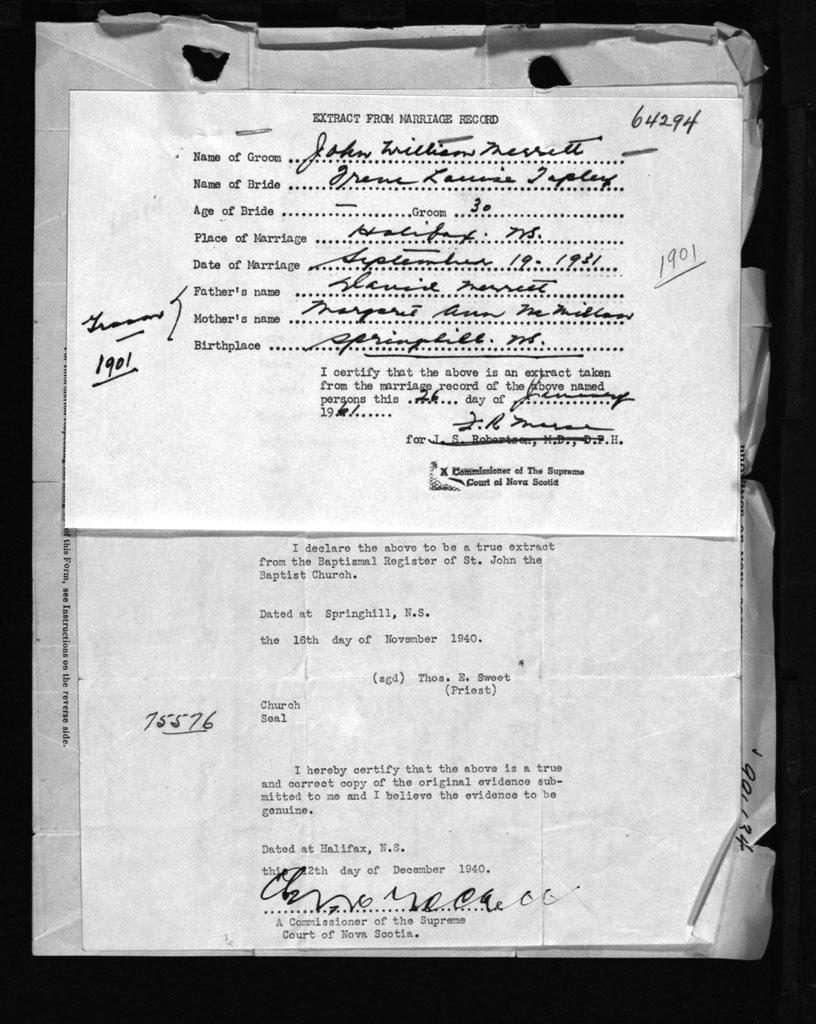 EXTRACT FROM MARRIAGE RECORD
64294
Name of Groom ... John William Merritt
Name of Bride ... Irene Louise Tapley
Age of Bride ... — ... Groom ... 30
Place of Marriage ... Halifax. NS.
Date of Marriage ... September 19 - 1931
1901
Father's name ... David Merritt
Mother's name ... Margaret Ann McMillan
Birthplace ... Springhill. NS.
1901
I certify that the above is an extract taken
from the marriage record of the above named
persons this .26... day of January
1961......
for J. S. Robertson, M.D., D.P.H.
A Commissioner of The Supreme
Court of Nova Scotia
of this Form, see Instructions on the reverse side.
I declare the above to be a true extract
from the Baptismal Register of St. John the
Baptist Church.
Dated at Springhill, N.S.
the 16th day of November 1940.
(sgd) Thos. E. Sweet
(Priest)
Church
Seal
75576
I hereby certify that the above is a true
and correct copy of the original evidence sub-
mitted to me and I believe the evidence to be
genuine.
Dated at Halifax, N.S.
this 12th day of December 1940.
A Commissioner of the Supreme
Court of Nova Scotia.